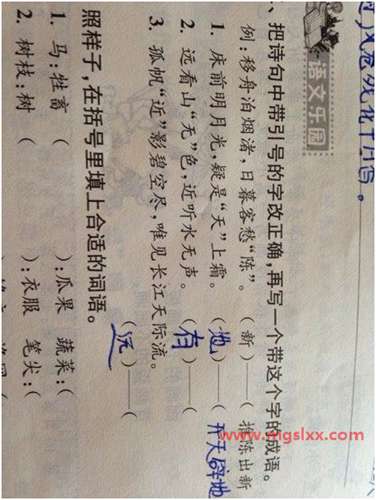 语文乐园
、把诗句中带引号的字改正确,再写一个带这个字的成语。
例:移舟泊烟渚,日暮客愁“陈”。 (新) 推陈出新
1. 床前明月光,疑是“天”上霜。 (地)—(开天辟地
2. 远看山“无”色,近听水无声。 (有)—(
3. 孤帆“近”影碧空尽,唯见长江天际流。 (远)—(
照样子,在括号里填上合适的词语。
1. 马:牲畜 ( ):瓜果 蔬菜:(
2. 树枝:树 ( ):衣服 笔尖:(
www.nigslxx.com